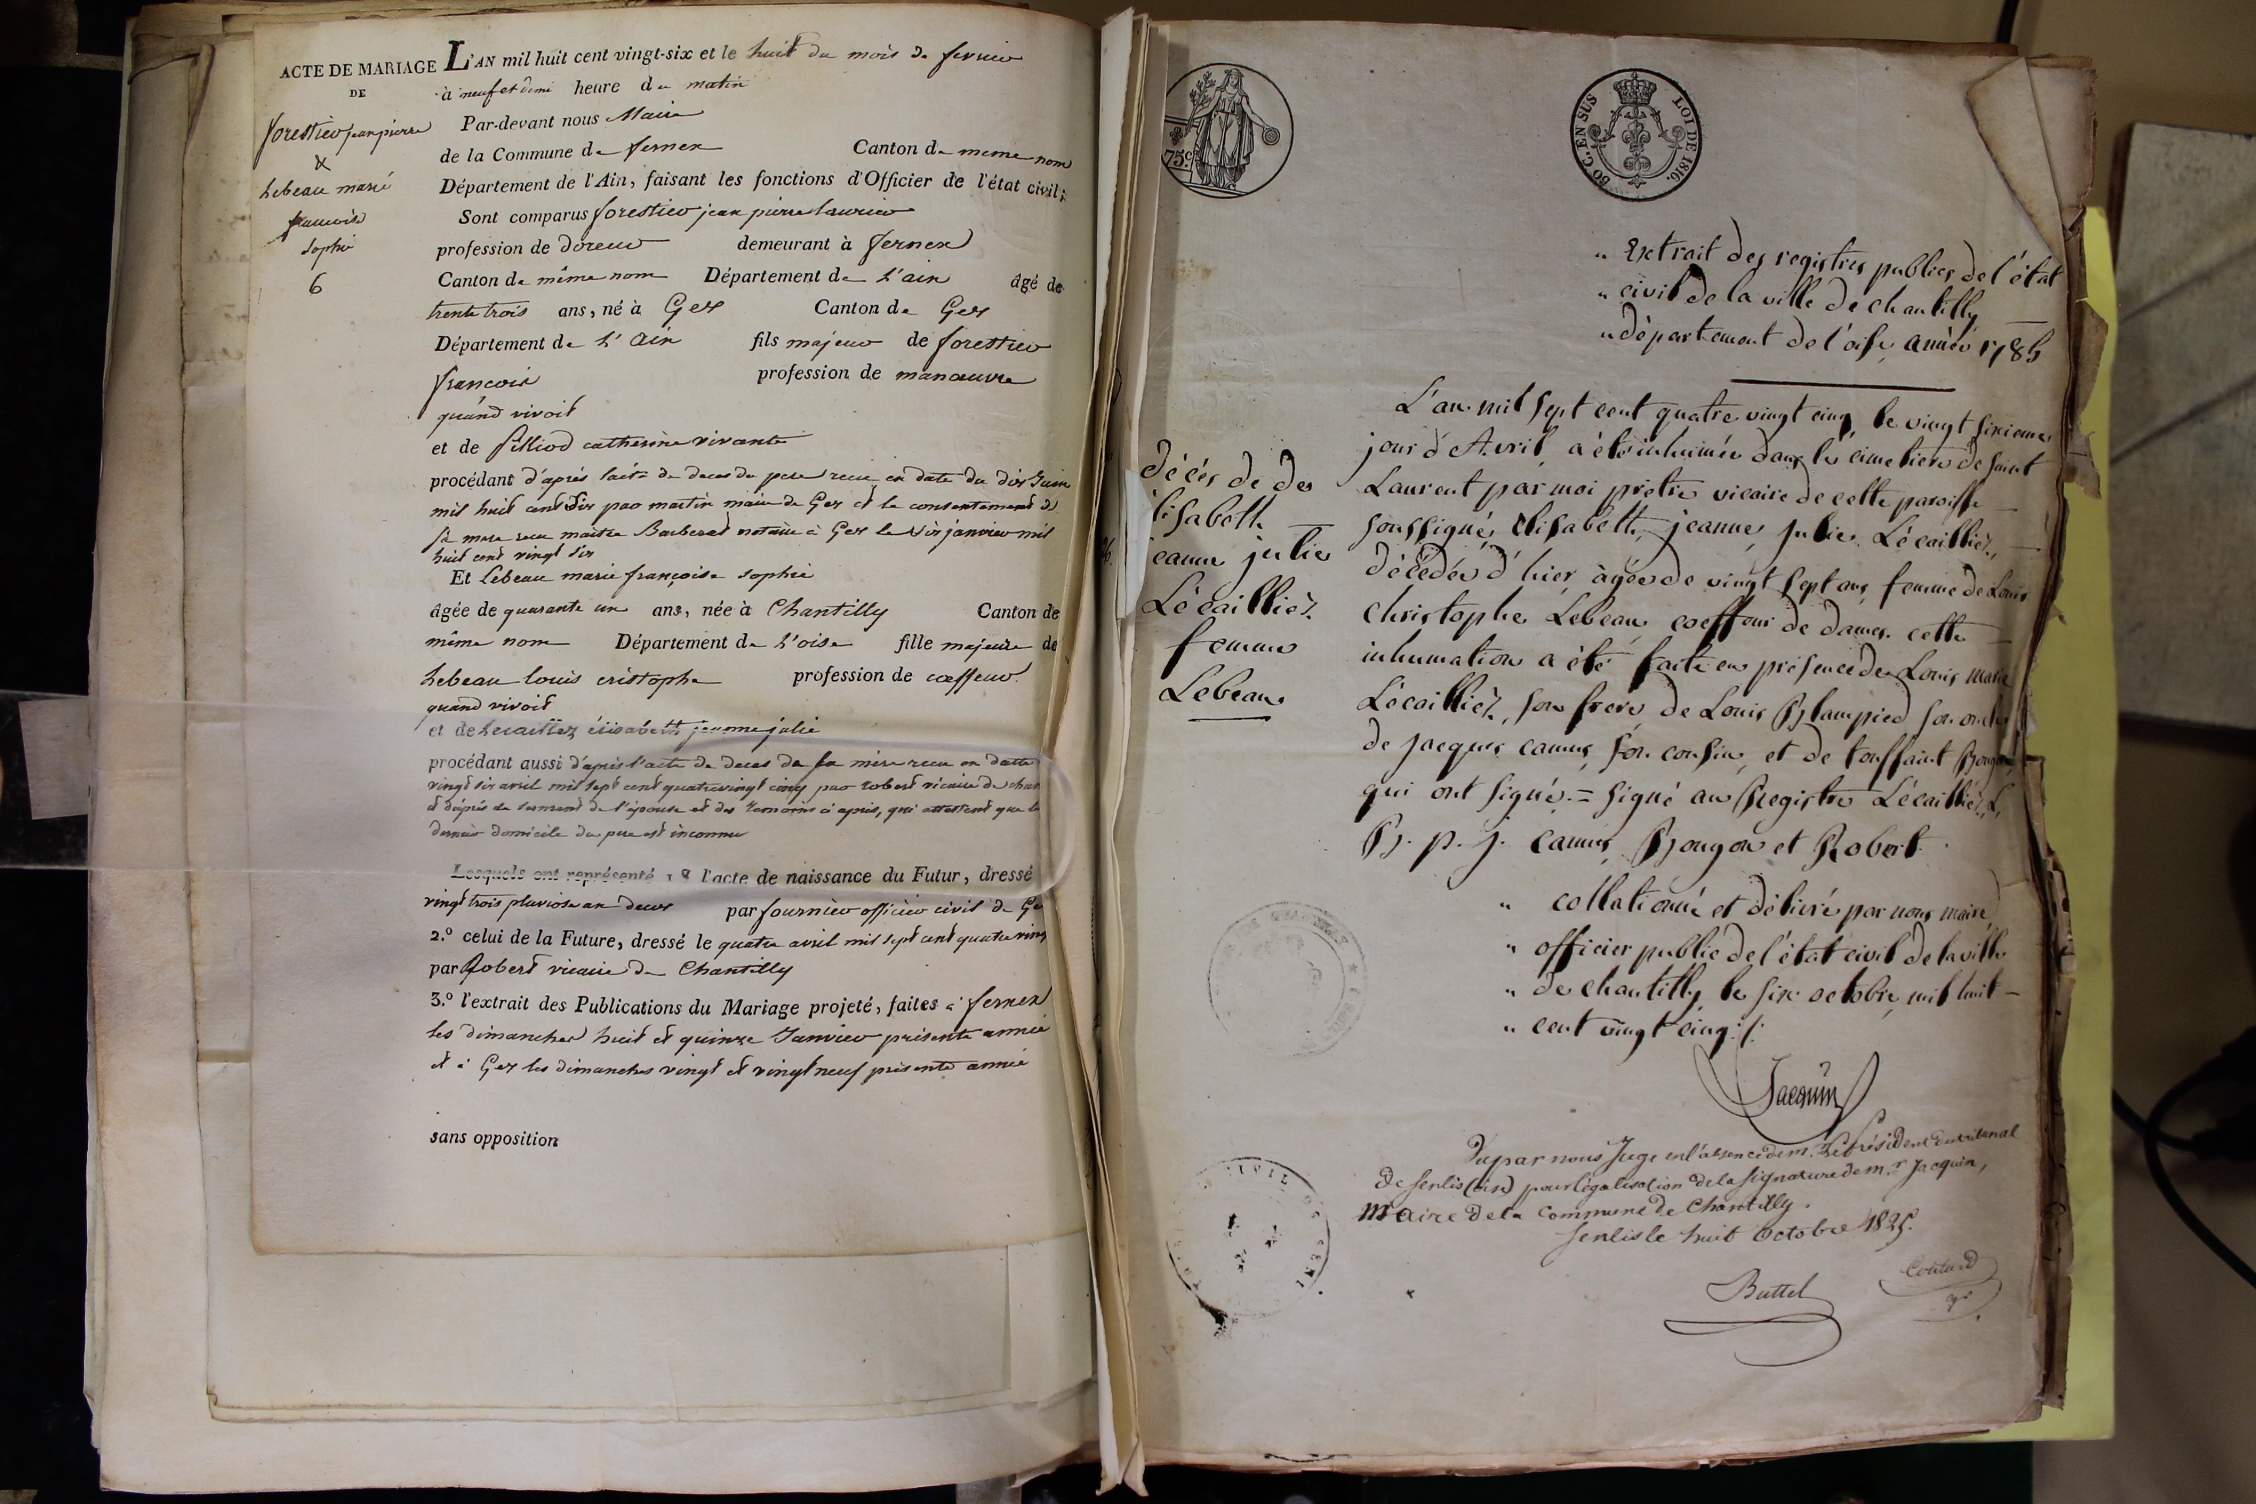 ACTE DE MARIAGE
DE
forestier jean pierre
&
Lebeau marie
francoise
sophie
6
L'AN mil huit cent vingt-six et le huit du mois de fevrier
à neuf et demi heure du matin
Par-devant nous Maire
de la Commune de fernex Canton de meme nom
Département de l'Ain, faisant les fonctions d'Officier de l'état civil;
Sont comparus forestier jean pierre laurier
profession de doreur demeurant à fernex
Canton de même nom Département de L'ain âgé de
trente trois ans, né à Gex Canton de Gex
Département de L'ain fils majeur de forestier
francois profession de manœuvre
quand vivoit
et de pilliod catherine vivante
procédant d'aprés l'acte de deces du pere recu en date du dix Juin
mil huit cent dix par martin maire de Gex et le consentement de
sa mere recu maitre Barberat notaire à Gex le six janvier mil
huit cent vingt six
Et Lebeau marie françoise sophie
âgée de quarante un ans, née à Chantilly Canton de
même nom Département de L'oise fille majeure de
Lebeau louis cristophe profession de coeffeur
quand vivoit
et de Lecaillez élisabeth jeanne julie
procédant aussi d'apres l'acte de deces de sa mère recu en datte
vingt six avril mil sept cent quatrevingt cinq par robert vicaire de chan
et d'après le serment de l'épouse et des temoins ci après, qui attestent que le
dernier domicile du pere est inconnu
Lesquels ont représenté 1.º l'acte de naissance du Futur, dressé
vingt trois pluviose an deux par fournier officier civil de Ge
2.º celui de la Future, dressé le quatre avril mil sept cent quatre ving
par Robert vicaire de Chantilly
3.º l'extrait des Publications du Mariage projeté, faites à fernex
les dimanches huit et quinze Janvier présente année
et à Gex les dimanches vingt et vingt neuf présente année
sans opposition
75.c
80 C. EN SUS
LOI DE 1816.
" Extrait des registres publics de l'état
" civil de la ville de chantilly
" département de l'oise année 1785
L'an mil sept cent quatre vingt cinq le vingt sixieme
jour d'Avril, a été inhumée dans le cimetiere de saint
Laurent par moi prêtre vicaire de cette paroisse
soussigné, Elisabeth, jeanne, julie Lécailliez,
décédée d'hier, âgée de vingt sept ans, femme de Louis
christophe Lebeau, coeffeur de dames. cette
inhumation a été faite en présence de Louis marie
Lécailliez, son frere, de Louis Blampied son oncle
de jacques camus, son cousin, et de toussaint Bougon
qui ont signé. = signé au Registre Lécailliez, L.
B. p. j. camus, Bougon et Robert.
décés de de
lisabeth
eanne julie
Lécailliez
femme
Lebeau
" collationné et délivré par nous maire
" officier public de l'état civil de la ville
" de chantilly le six octobre mil huit
" cent vingt cinq ./.
Jacquin
Vu par nous Juge en l'absence de m. Le Président du tribunal
de senlis (oise) pour légalisation de la signature de m.r Jacquin,
Maire de la Commune de Chantilly.
Senlis le huit Octobre 1825.
Buttel